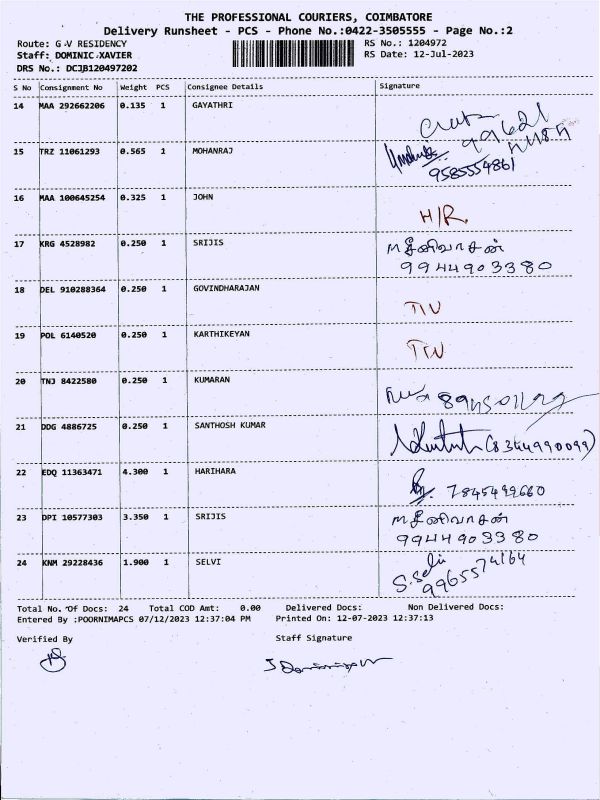 THE PROFESSIONAL COURIERS, COIMBATORE
Delivery Runsheet - PCS - Phone No.:0422-3505555 - Page No.:2
Route: G V RESIDENCY RS No.: 1204972
Staff: DOMINIC XAVIER RS Date: 12-Jul-2023
DRS No.: DCJB120497202
S No Consignment No Weight PCS Consignee Details Signature
14 MAA 292662206 0.135 1 GAYATHRI
15 TRZ 11061293 0.565 1 MOHANRAJ
9585554861
16 MAA 100645254 0.325 1 JOHN H/R
17 KRG 4528982 0.250 1 SRIJIS சீனிவாசன்
9944903380
18 DEL 910288364 0.250 1 GOVINDHARAJAN
19 POL 6140520 0.250 1 KARTHIKEYAN
20 TNJ 8422580 0.250 1 KUMARAN
21 DDG 4886725 0.250 1 SANTHOSH KUMAR (8344990099)
22 EDQ 11363471 4.300 1 HARIHARA 7845499660
23 DPI 10577303 3.350 1 SRIJIS சீனிவாசன்
9944903380
24 KNM 29228436 1.900 1 SELVI S.Selvi
9965574164
Total No. Of Docs: 24 Total COD Amt: 0.00 Delivered Docs: Non Delivered Docs:
Entered By :POORNIMAPCS 07/12/2023 12:37:04 PM Printed On: 12-07-2023 12:37:13
Verified By Staff Signature